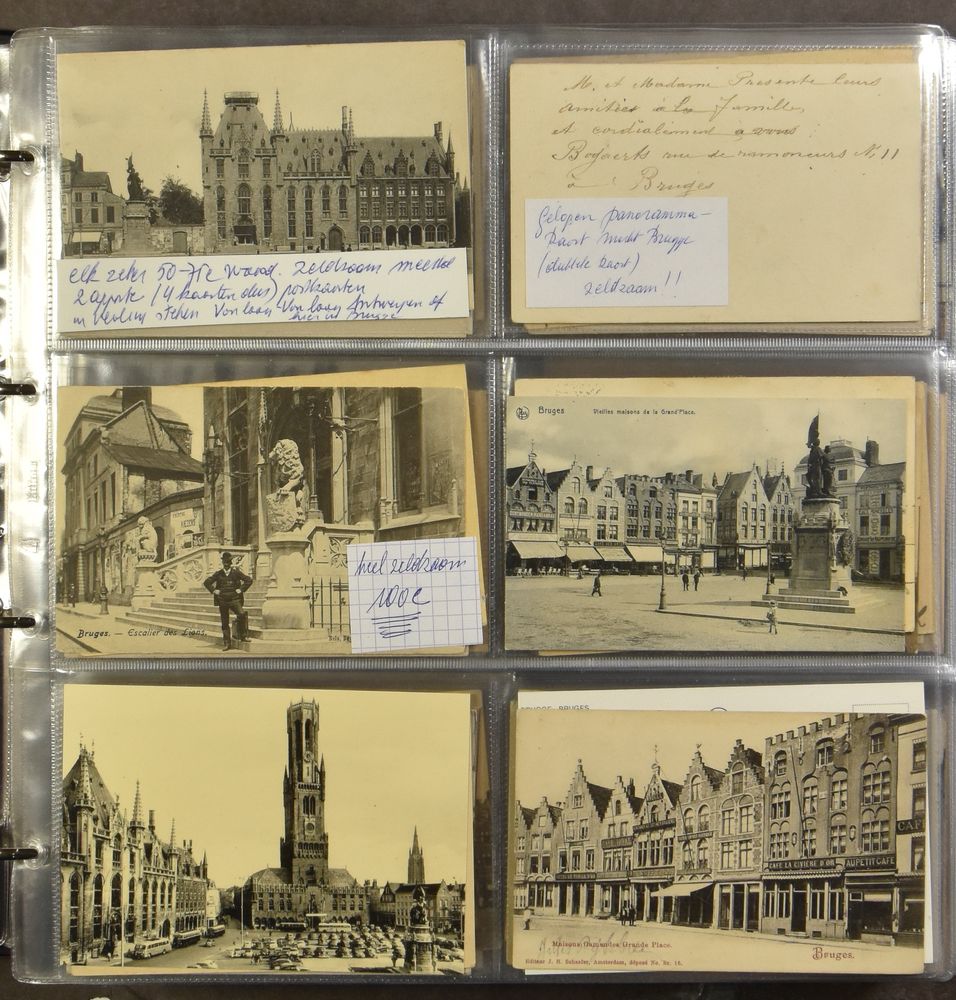 elk zeker 50-75€ waard. zeldzaam meestal
2 aparte (4 kaarten dus) postkaarten
in veiling stehen Von loon - Von loon Antwerpen of
hier in Brugge
M. et Madame Presente leurs
amitiés à la famille,
et cordialement à vous
Bogaerts rue de ramoneurs N. 11
à Bruges
Gelopen panoramma-
kaart markt Brugge
(dubbele kaart)
zeldzaam !!
HOTEL
Bruges. — Escalier des Lions.
heel zeldzaam
100€
Bruges
Vieilles maisons de la Grand'Place.
BRUGGE BRUGES
CAFE LA CIVIÈRE D'OR
AU PETIT CAFE
CAFE
Maisons Gamandes Grande Place.
Bruges.
Editeur J. H. Schaefer, Amsterdam, déposé No. Br. 16.